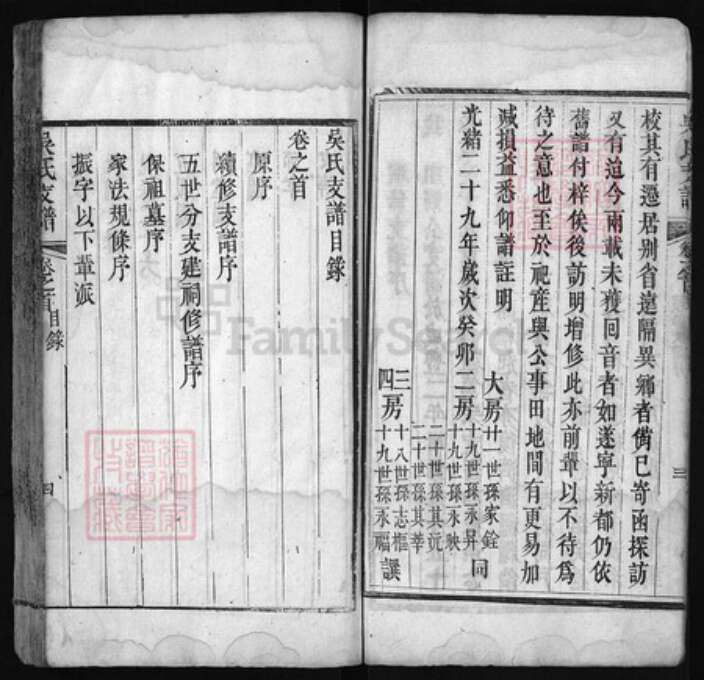 校其有遷居别省遠隔異鄉者備已寄函探訪
又有迨今兩載未獲回音者如遂寧新都仍依
舊譜付梓俟後訪明增修此亦前輩以不待為
待之意也至於祀產與公事田地間有更易加
減損益悉仰譜註明
光緒二十九年歲次癸卯
大房廿一世孫家銓
二房十九世孫永昇
十九世孫永映
二十世孫其沅
二十世孫其華
三房十八世孫志樞
四房十九世孫永福
同
譔
吳氏支譜
卷之首
三
吳氏支譜目錄
卷之首
原序
續修支譜序
五世分支建祠修譜序
保祖墓序
家法規條序
振字以下輩派
吳氏支譜
卷之首
目錄
四
FamilySearch